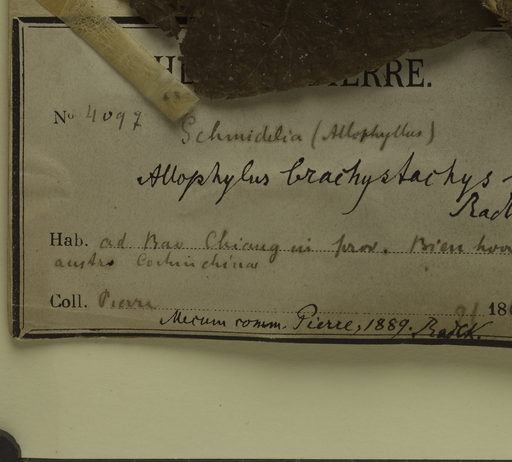 PIERRE.
No 4097
Schmidelia (Allophyllus)
Allophylus brachystachys
Radlk
Hab. ad Bao Chiang in prov. Bien hoa
austro Cochinchina
Coll. Pierre 186
Mecum comm. Pierre, 1889. Radlk.